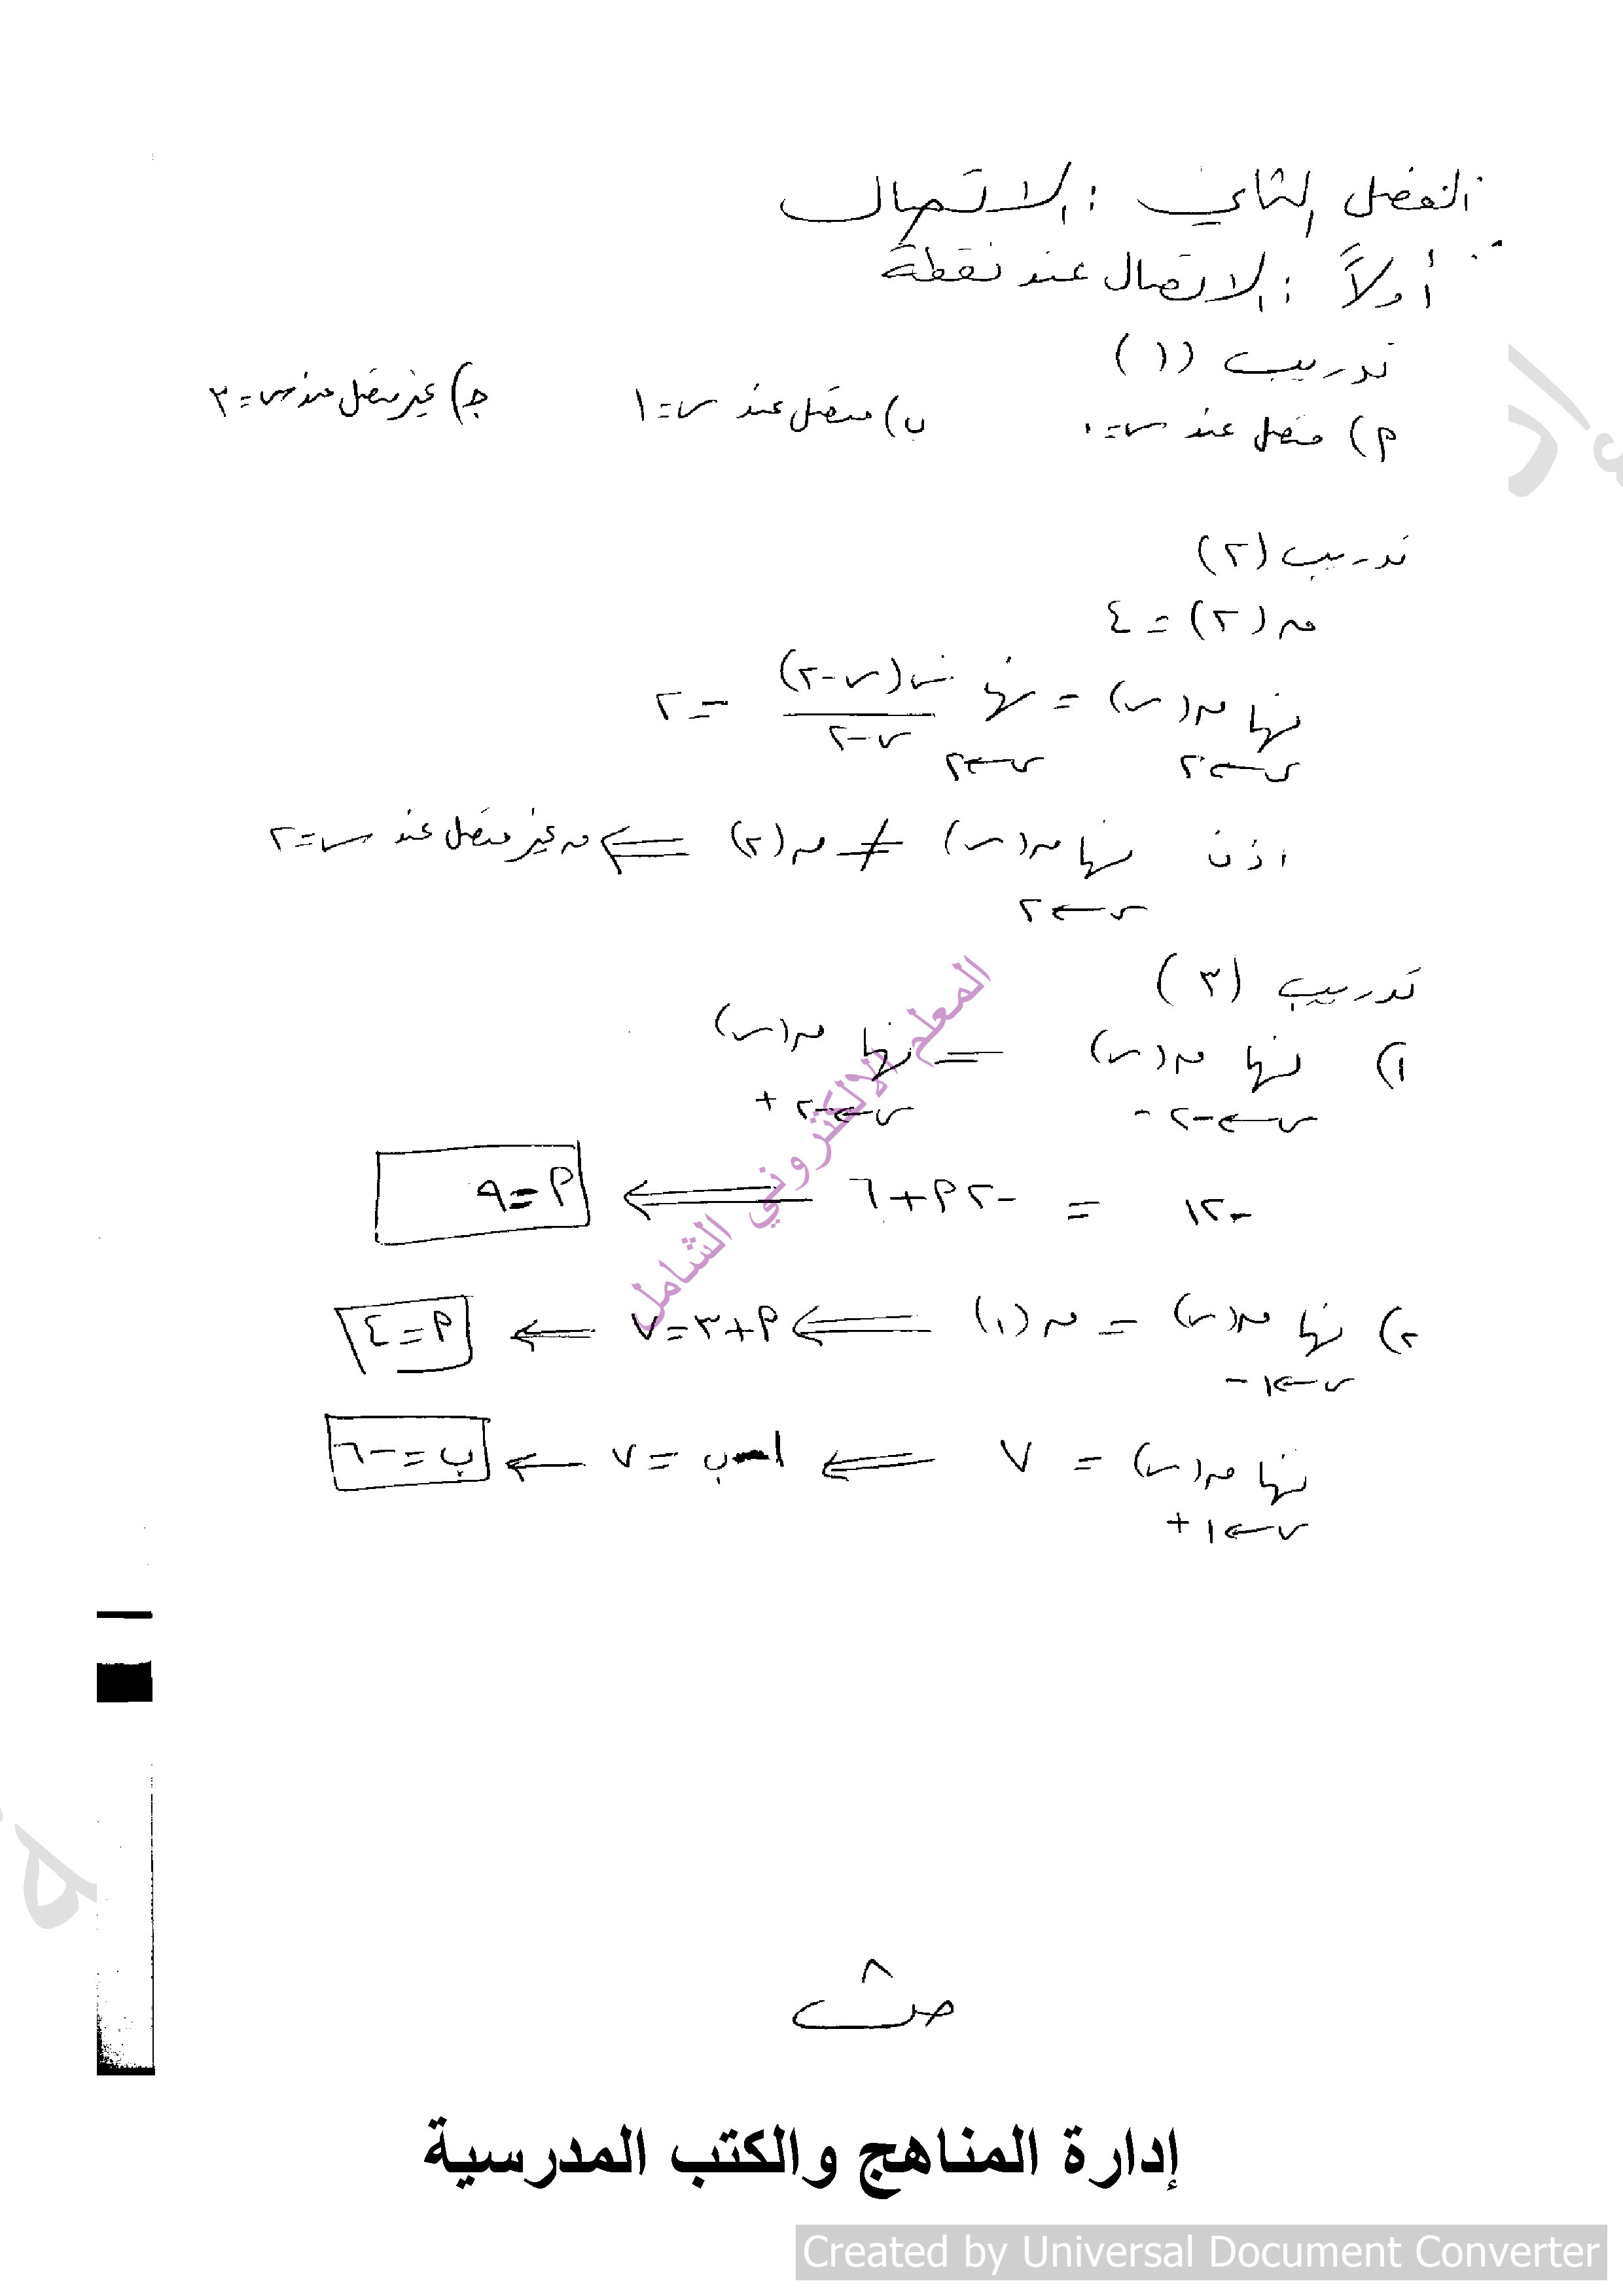 الفصل الثاني : الاتصال
أولاً : الاتصال عند نقطة
تدريب (١)
٢) متصل عند س=٠ ب) متصل عند س=١ جـ) غير متصل عند س=٣
تدريب (٢)
ق(٢) = ٤
نها ق(س) = نها س(س-٢) = ٢
س←٢ س←٢ س-٢
اذن نها ق(س) ≠ ق(٢) ⇐ ق غير متصل عند س=٢
س←٢
تدريب (٣)
١) نها ق(س) = نها ق(س)
س←-٢- س←-٢+
-١٢ = -٢م+٦ ⇐ م=٩
٢) نها ق(س) = ق(١) ⇐ م+٣=٧ ← م=٤
س←١-
نها ق(س) = ٧ ⇐ ١-ب=٧ ← ب=-٦
س←١+
المعلم الالكتروني الشامل
٨
إدارة المناهج والكتب المدرسية
Created by Universal Document Converter